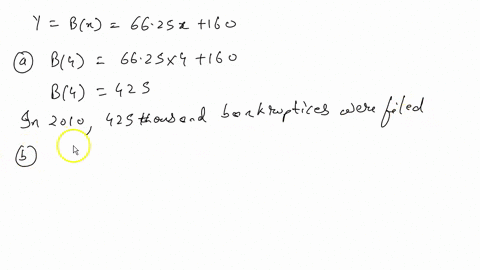 Y = B(x) = 66.25x + 160
(a) B(4) = 66.25x4 + 160
B(4) = 425
In 2010, 425 thousand bankruptices were filed
(b)